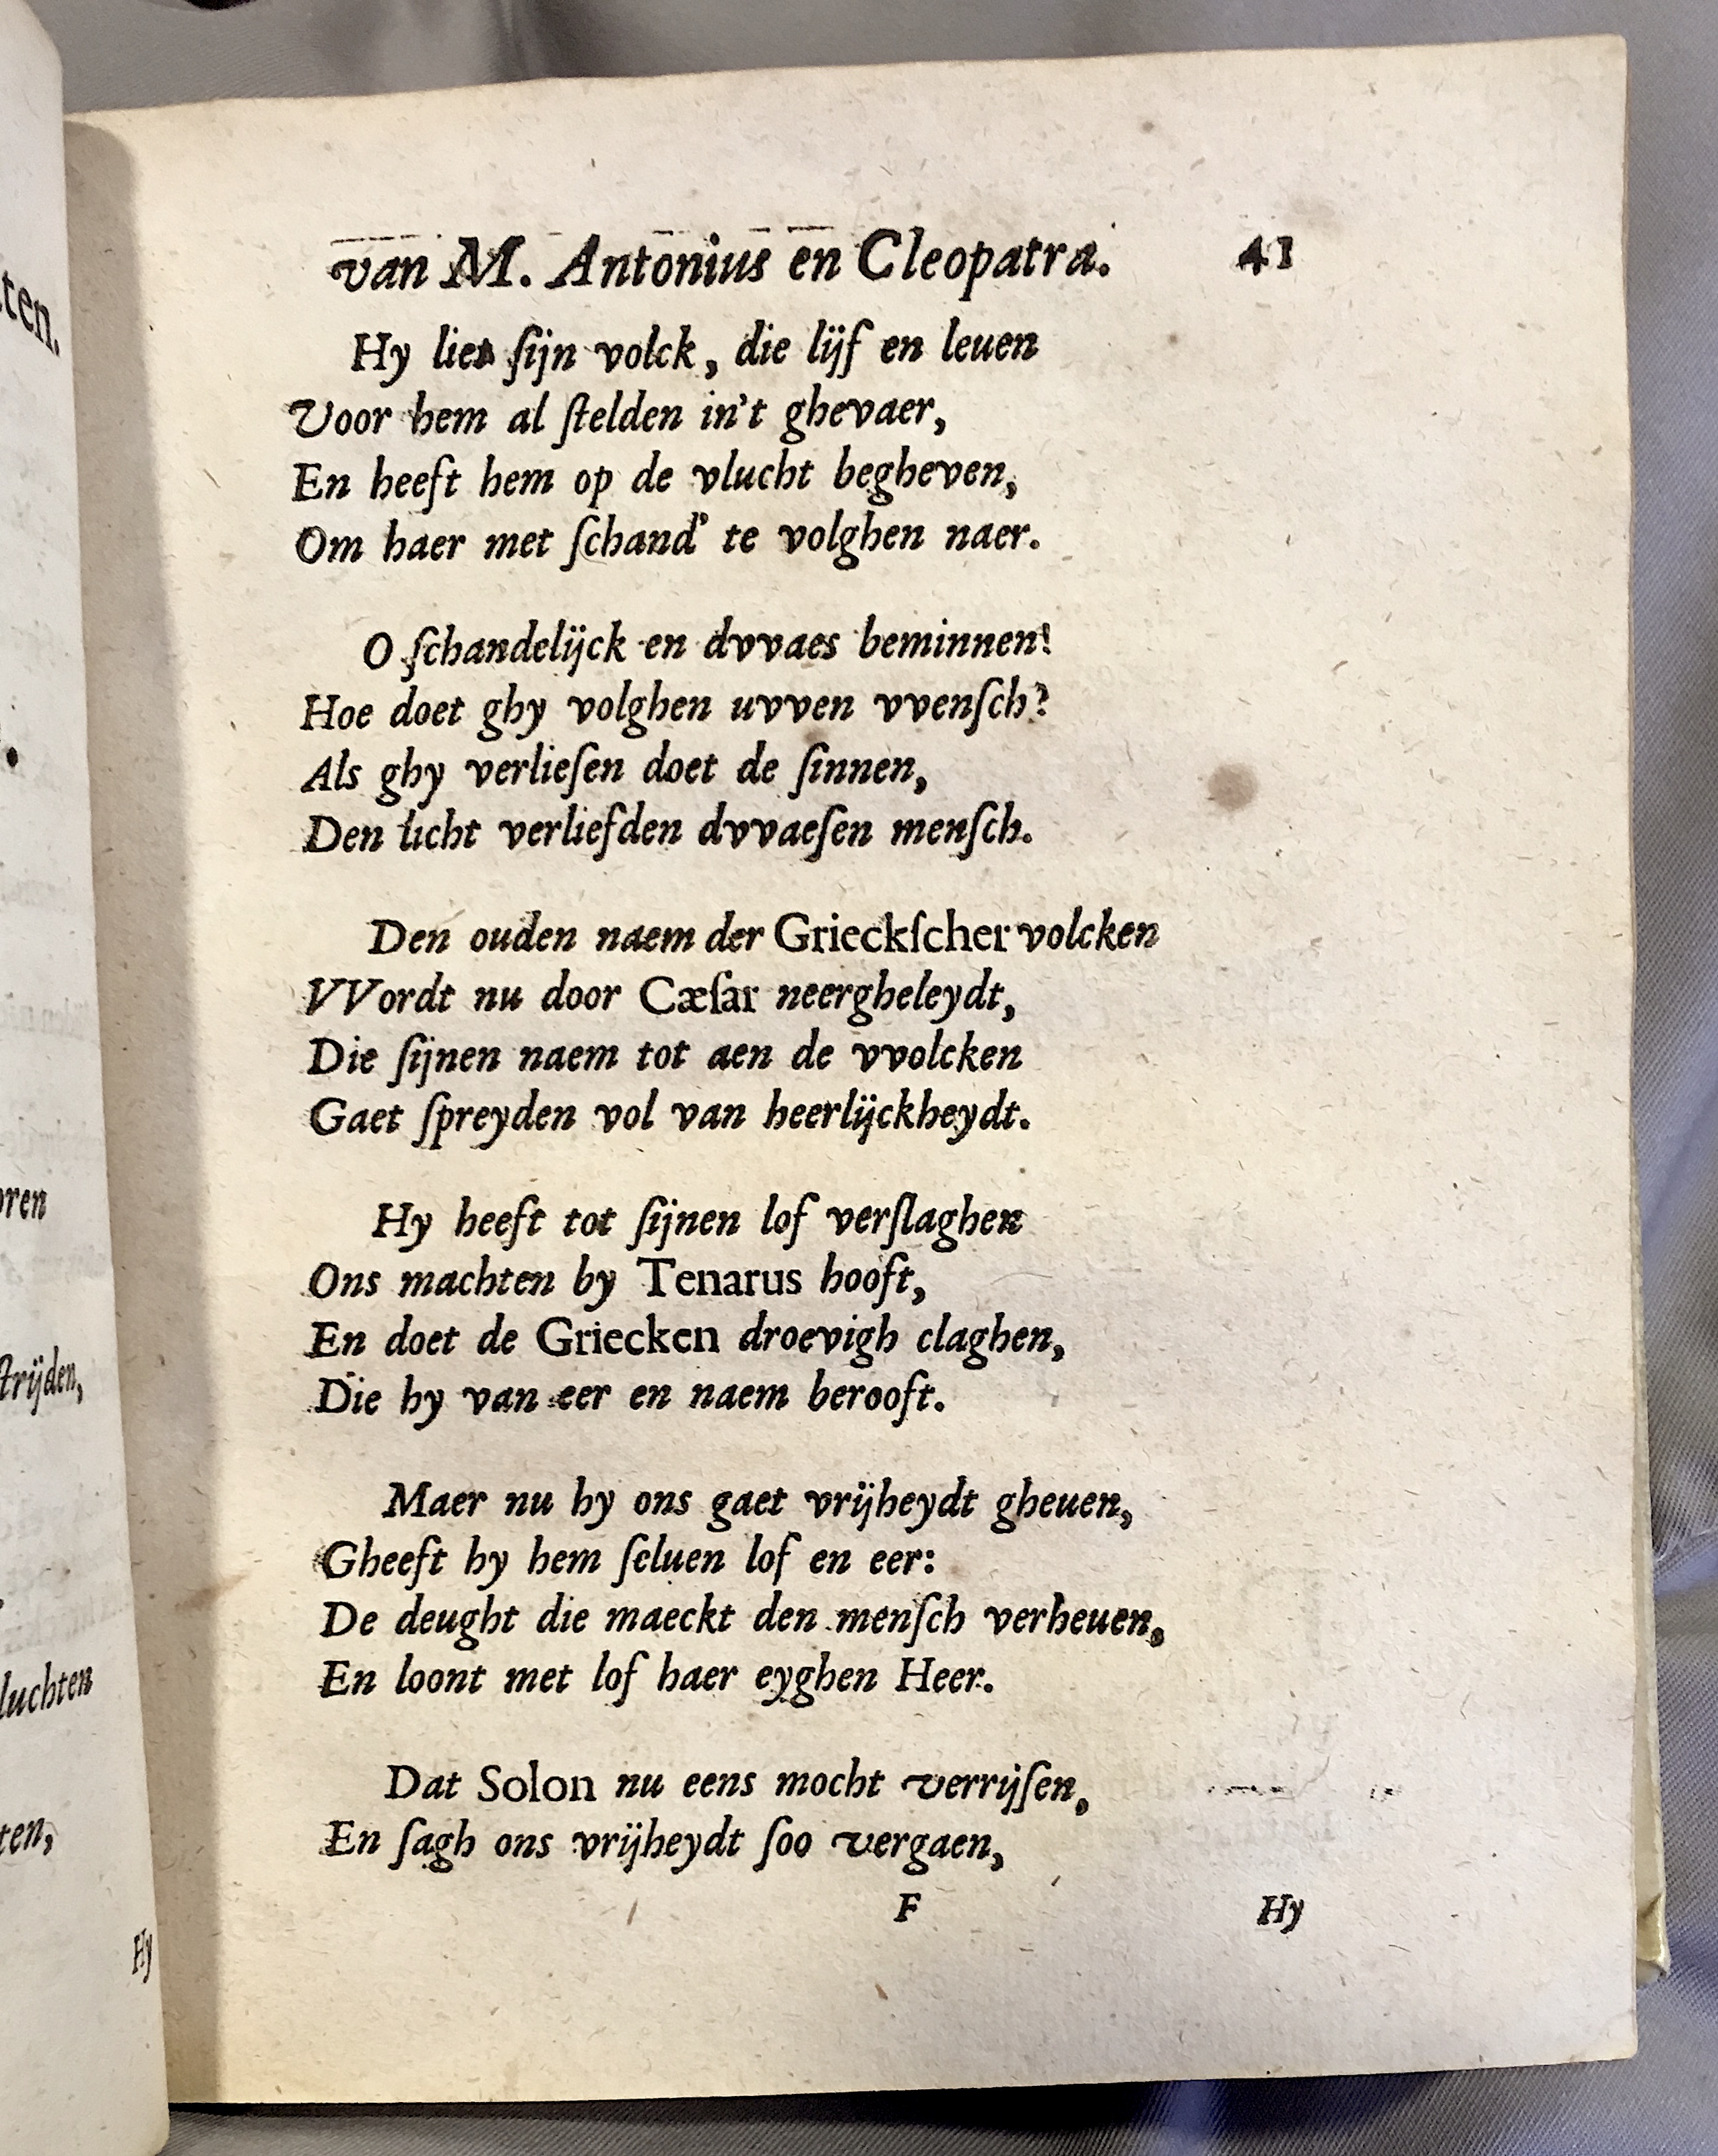 van M. Antonius en Cleopatra. 41
Hy liet ſijn volck, die lijf en leuen
Voor hem al ſtelden in't ghevaer,
En heeft hem op de vlucht begheven,
Om haer met ſchand' te volghen naer.
O ſchandelijck en dvvaes beminnen!
Hoe doet ghy volghen uvven vvenſch?
Als ghy verlieſen doet de ſinnen,
Den licht verliefden dvvaeſen menſch.
Den ouden naem der Grieckſcher volcken
VVordt nu door Cæſar neergheleydt,
Die ſijnen naem tot aen de vvolcken
Gaet ſpreyden vol van heerlijckheydt.
Hy heeft tot ſijnen lof verſlaghen
Ons machten by Tenarus hooft,
En doet de Griecken droevigh claghen,
Die hy van eer en naem berooft.
Maer nu hy ons gaet vrijheydt gheuen,
Gheeft hy hem ſeluen lof en eer:
De deught die maeckt den menſch verheuen,
En loont met lof haer eyghen Heer.
Dat Solon nu eens mocht verrijſen,
En ſagh ons vrijheydt ſoo vergaen,
F Hy